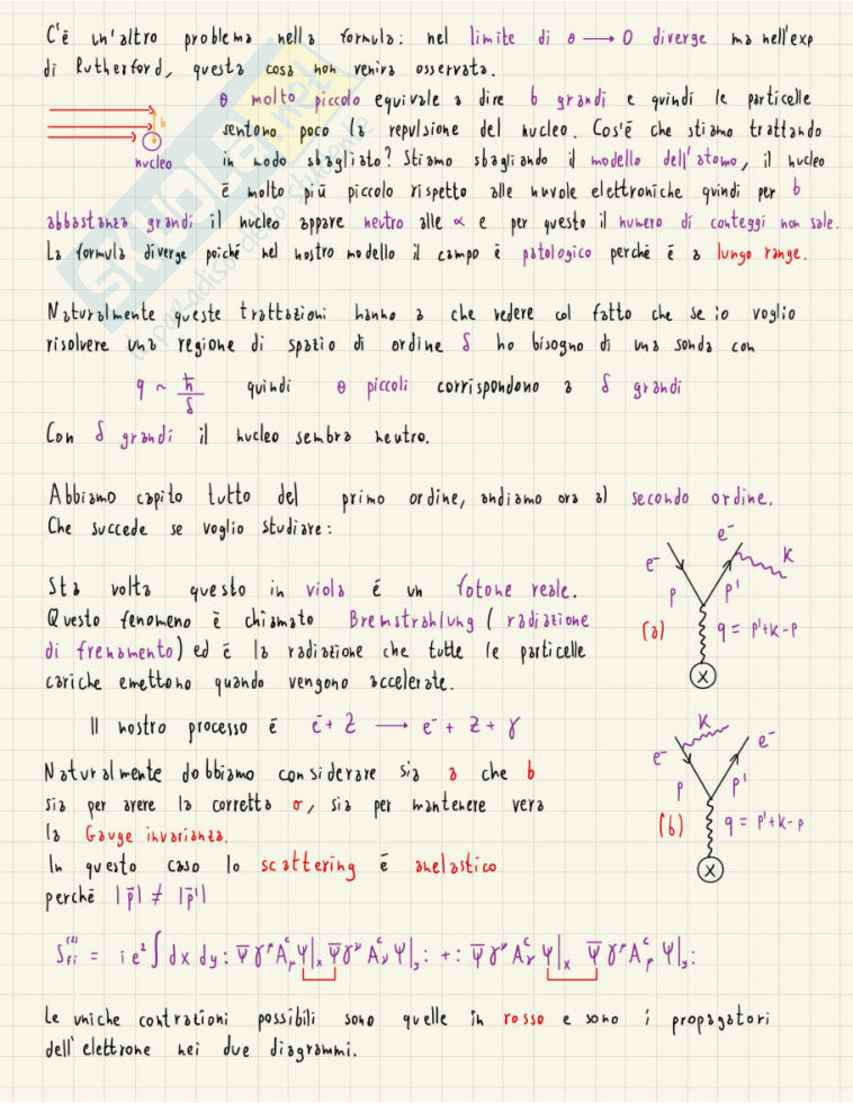 C'è un'altro problema nella formula: nel limite di θ → 0 diverge ma nell'exp
di Rutherford, questa cosa non veniva osservata.
θ molto piccolo equivale a dire b grandi e quindi le particelle
b
sentono poco la repulsione del nucleo. Cos'è che stiamo trattando
nucleo
in modo sbagliato? Stiamo sbagliando il modello dell'atomo, il nucleo
è molto più piccolo rispetto alle nuvole elettroniche quindi per b
abbastanza grandi il nucleo appare neutro alle α e per questo il numero di conteggi non sale.
La formula diverge poiché nel nostro modello il campo è patologico perché è a lungo range.
Naturalmente queste trattazioni hanno a che vedere col fatto che se io voglio
risolvere una regione di spazio di ordine δ ho bisogno di una sonda con
q ~ ħ/δ quindi θ piccoli corrispondono a δ grandi
Con δ grandi il nucleo sembra neutro.
Abbiamo capito tutto del primo ordine, andiamo ora al secondo ordine.
Che succede se voglio studiare:
e⁻ e⁻ K
p p'
(a) q = p'+k-p
X
Sta volta questo in viola é un fotone reale.
Questo fenomeno è chiamato Bremstrahlung (radiazione
di frenamento) ed è la radiazione che tutte le particelle
cariche emettono quando vengono accelerate.
Il nostro processo é e⁻ + Z → e⁻ + Z + γ
K
e⁻ e⁻
p p'
(b) q = p'+k-p
X
Naturalmente dobbiamo considerare sia a che b
sia per avere la corretta σ, sia per mantenere vera
la Gauge invarianza.
In questo caso lo scattering é anelastico
perché |p̄| ≠ |p̄'|
S_fi^(2) = ie² ∫ dx dy : Ψ̄γ^μ A_μ^c Ψ|_x Ψ̄γ^ν A_ν^c Ψ|_y : + : Ψ̄γ^ν A_ν^c Ψ|_x Ψ̄γ^μ A_μ^c Ψ|_y :
Le uniche contrazioni possibili sono quelle in rosso e sono i propagatori
dell'elettrone nei due diagrammi.
SKUOLA.net
il paradiso dello studente